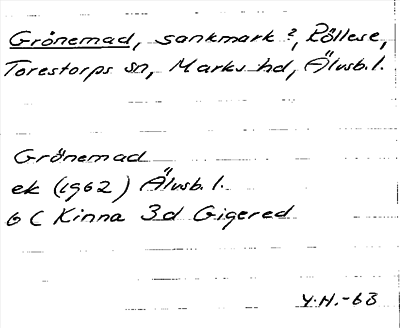 Grönemad, sankmark ?, Röllese,
Torestorps sn, Marks hd, Älvsb. l.
Grönemad
ek (1962) Älvsb. l.
6 C Kinna 3d Gigered
Y.H.-63